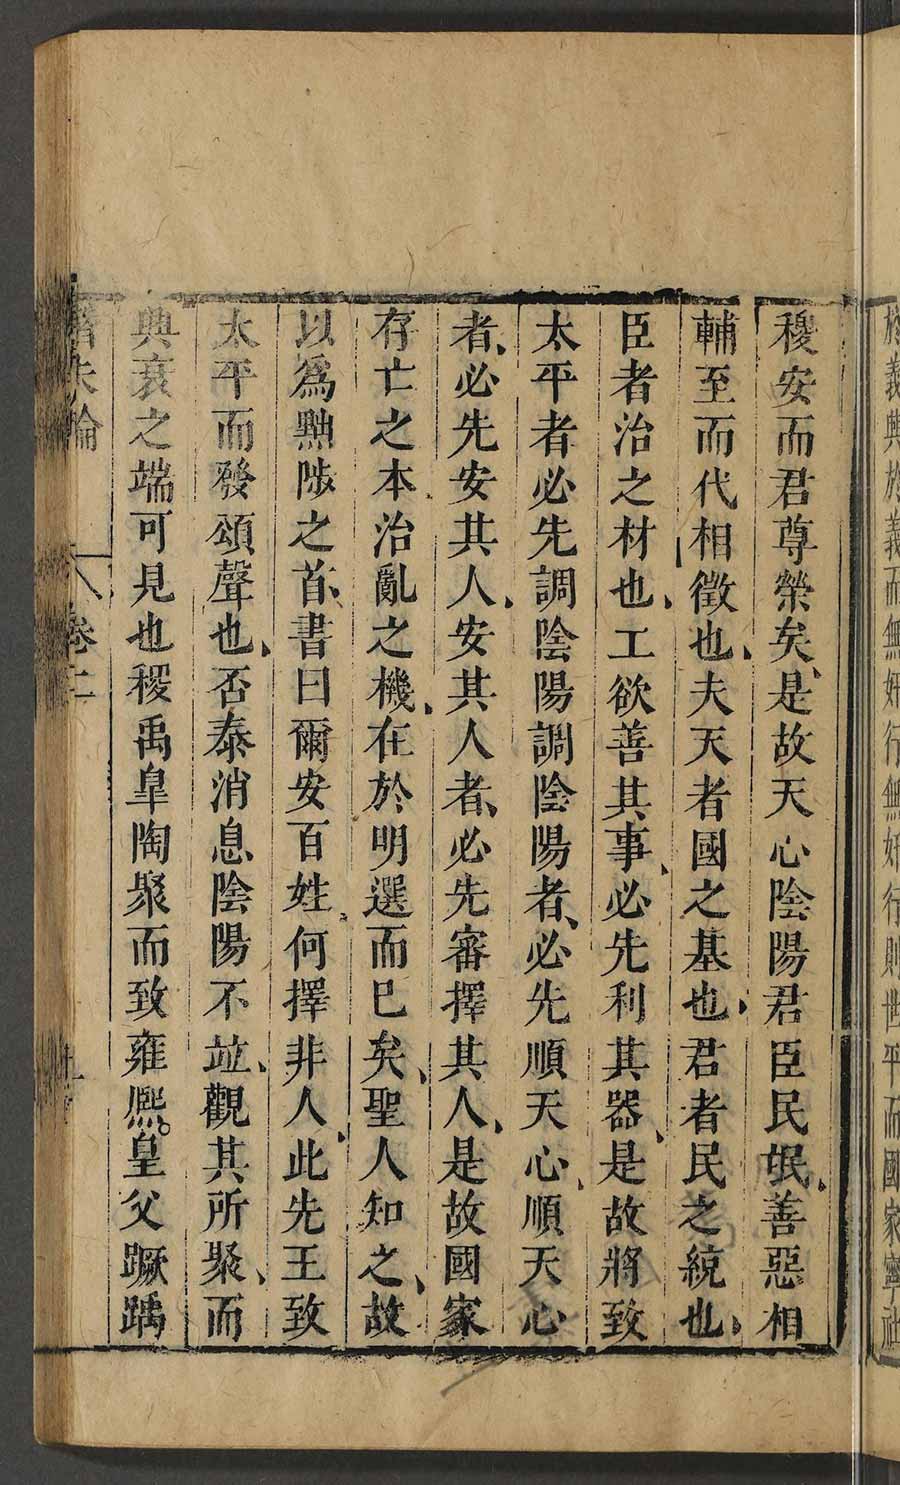 於義興於義而無姧行無姧行則世平而國家寧社
稷安而君尊榮矣、是故天心陰陽君臣民氓、善惡相
輔至而代相徵也、夫天者國之基也、君者民之統也、
臣者治之材也、工欲善其事、必先利其器、是故將致
太平者必先調陰陽調陰陽者、必先順天心、順天心
者、必先安其人、安其人者、必先審擇其人、是故國家
存亡之本治亂之機、在於明選而已矣、聖人知之、故
以為黜陟之首、書曰爾安百姓、何擇非人、此先王致
太平而發頌聲也、否泰消息陰陽不竝、觀其所聚、而
興衰之端可見也稷禹皐陶聚而致雍熈。皇父蹶踽
潛夫論 卷二